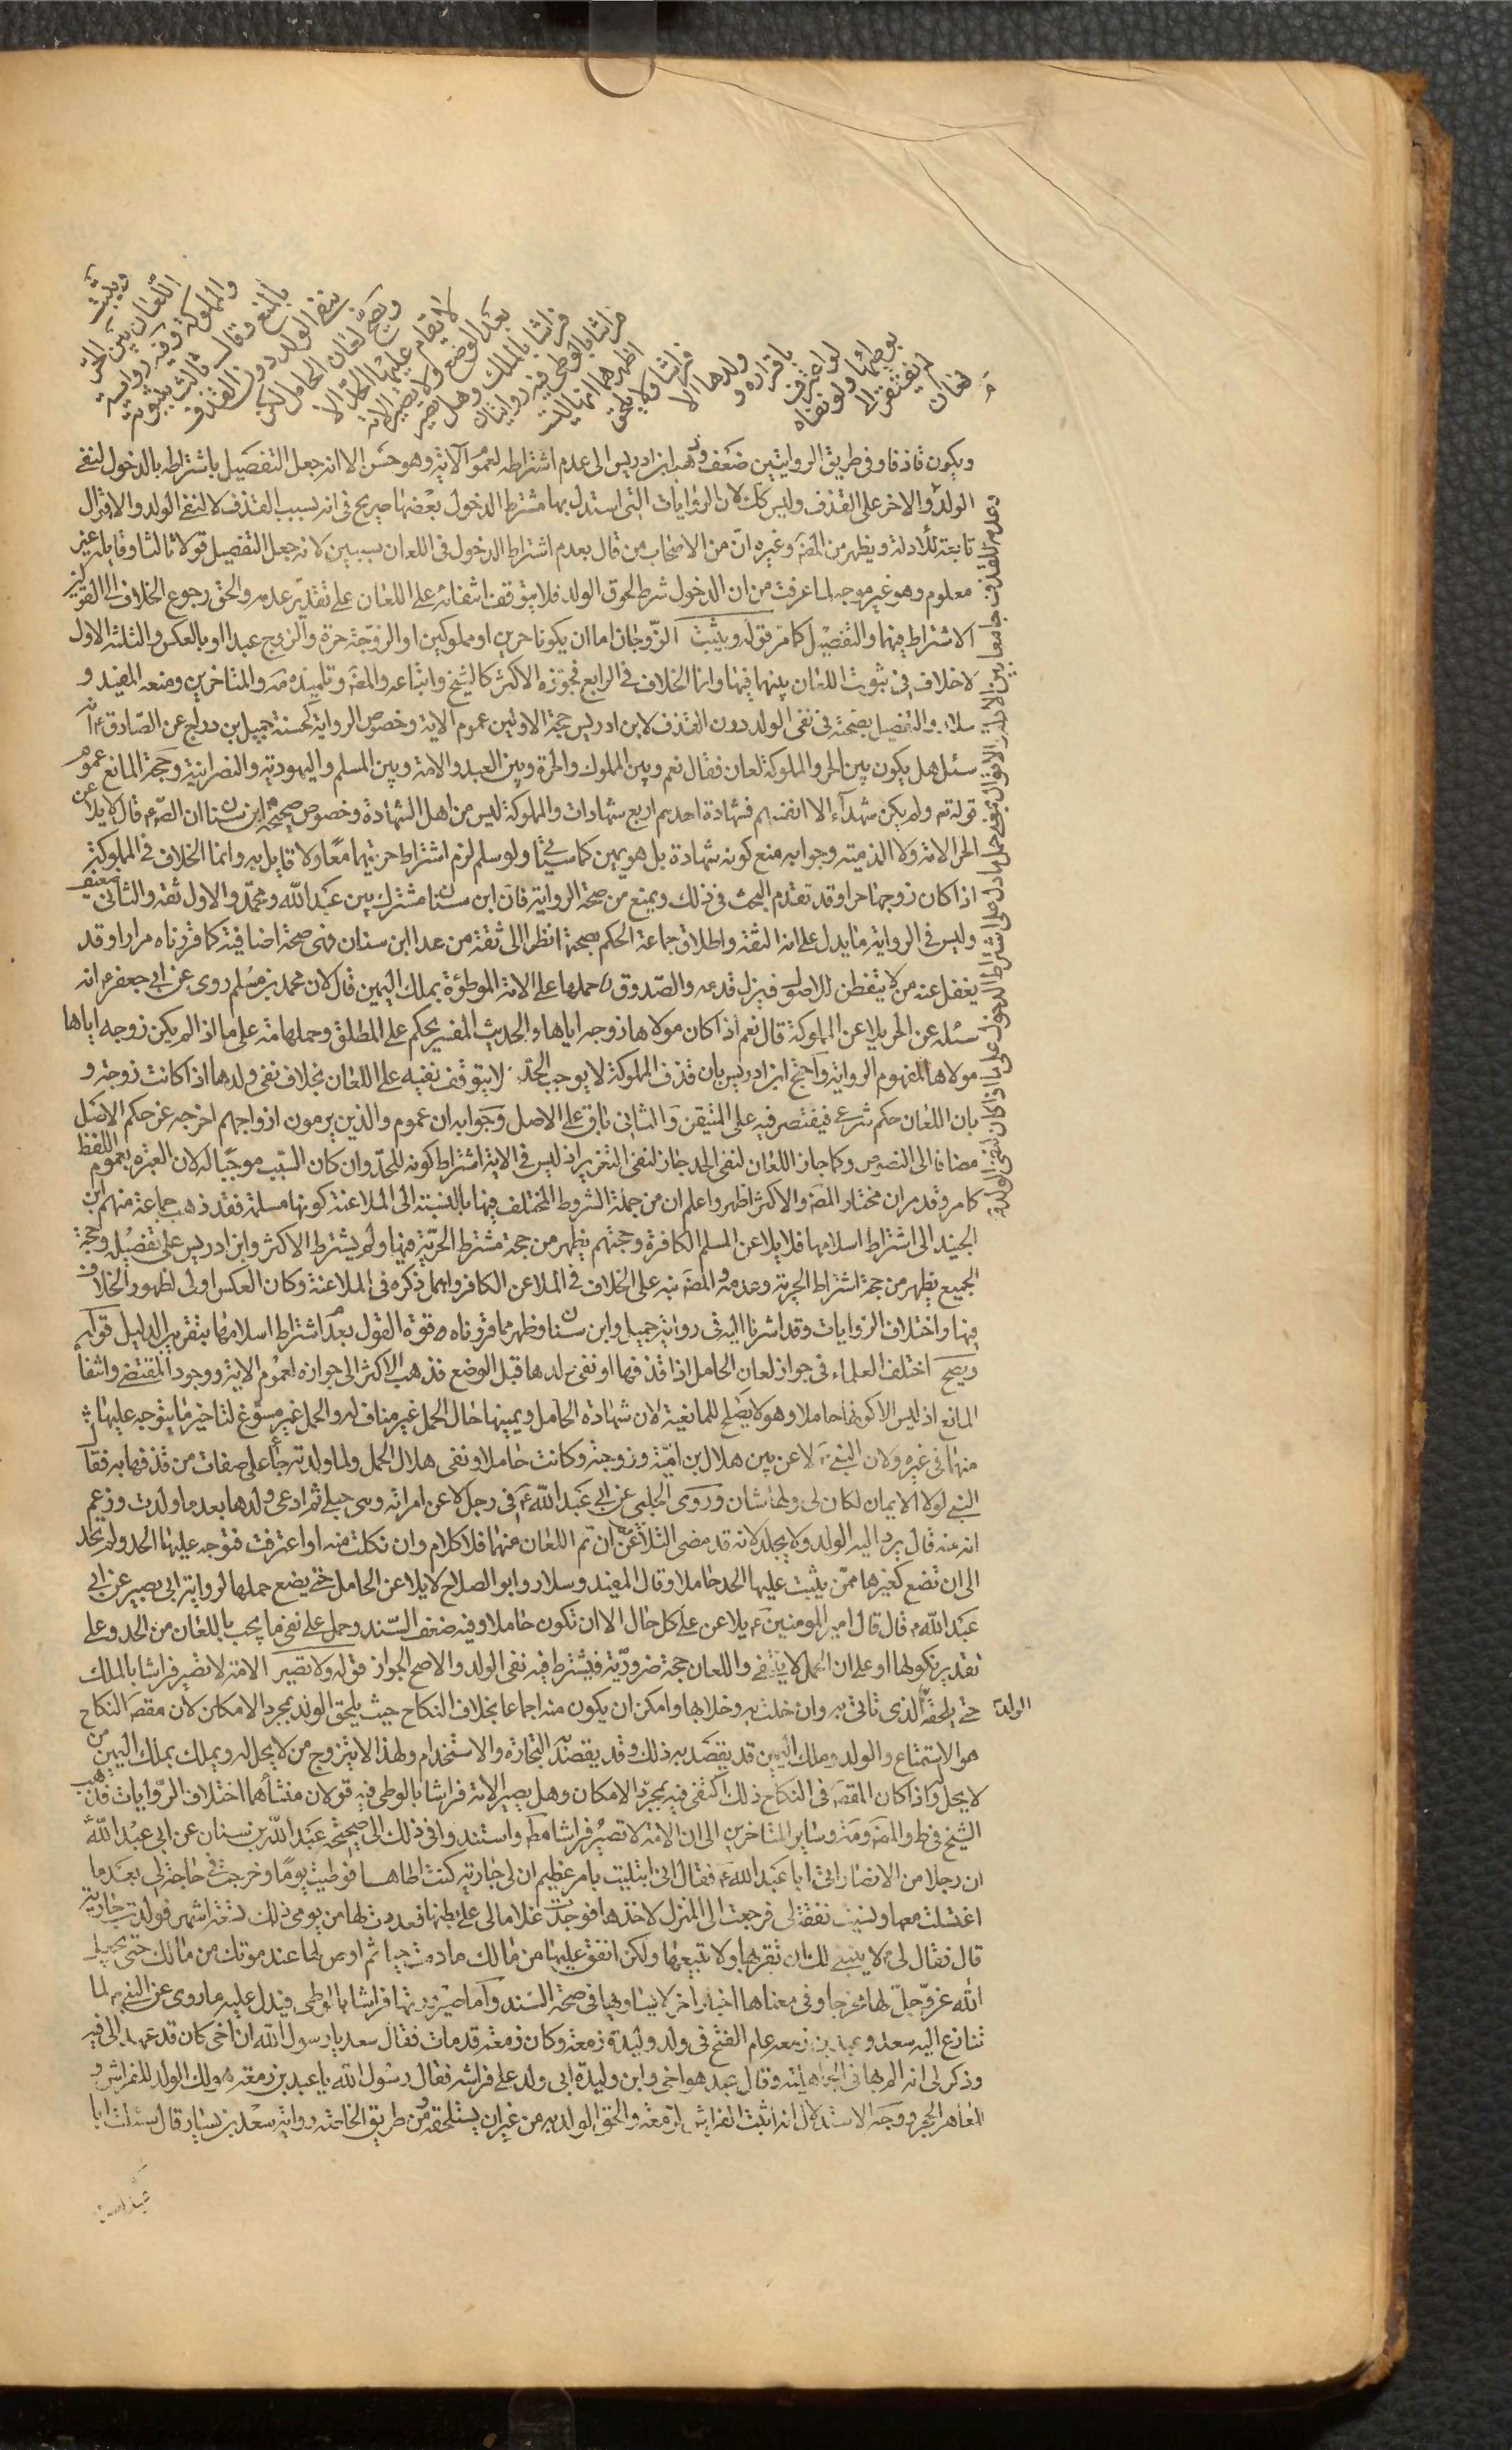 ويثبت
اللعان بين الحر
والمملوكة وفيه رواية
بالمنع وقال ثالث بثبوته
بنفي الولد دون القذف
ويصح لعان الحامل لكن
لا يقام عليها الحد الا
بعد الوضع ولا تصير الامة
فراشا بالملك وهل تصير
فراشا بالوطى فيه روايتان
اظهرهما انها ليست
فراشا ولا يلحق
ولدها الا
باقراره و
لو اعترف
بوطئها ولو نفاه
لم يفتقر الى
لعان
ويكون قاذفا وفى طريق الروايتين ضعف وذهب ابن ادريس الى عدم اشتراطه لعموم الآية وهو حسن الا انه جعل التفصيل باشتراطه بالدخول لنفى
الولد والاخر على القذف وليس كك لان الروايات التى استدل بها مشترط الدخول بعضها صريح فى انه بسبب القذف لا لنفى الولد والاقوال
تابعة للأدلة ويظهر من المصَ وغيره انّ من الاصحاب من قال بعدم اشتراط الدخول فى اللعان بسببين لانه جعل التفصيل قولا ثالثا وقايله غير
معلوم وهو غير موجه لما عرفت من ان الدخول شرط لحوق الولد فلا يتوقف انتفائه على اللعان على تقدير عدمه والحق رجوع الخلاف الى القولين
الاشتراط فيهما والتفصيل كما مر قوله ويثبت الزوجان اما ان يكونا حرين او مملوكين او الزوجة حرة والزوج عبدا او بالعكس والثلثة الاول
لا خلاف فى ثبوت اللعان بينهما فيها وانما الخلاف فى الرابع فجوزه الاكثر كالشيخ واتباعه والمصَ وتلميذه مَه والمتاخرين ومنعه المفيد و
سلار والتفصيل بصحته فى نفى الولد دون القذف لابن ادريس حجة الاولين عموم الاية وخصوص الرواية كحسنة جميل بن دراج عن الصادق ع انه
سئل هل يكون بين الحر والمملوكة لعان فقال نعم وبين المملوك والحرة وبين العبد والامة وبين المسلم واليهودية والنصرانية وحجة المانع عموم
قوله تع ولم يكن شهدآء الا انفسهم فشهادة احدهم اربع شهادات والمملوكة ليس من اهل الشهادة وخصوص صحيحة ابن سنان ان الصّ ع قال لا يلاعن
الحر الامة ولا الذمية وجوابه منع كونه شهادة بل هو يمين كما سيأتى ولو سلم لزم اشتراط حريتهما معًا ولا قايل به وانما الخلاف فى المملوكة
اذا كان زوجها حرا وقد تقدم البحث فى ذلك ويمنع من صحة الرواية فان ابن سنان مشترك بين عبد الله ومحمد والاول ثقة والثانى ضعيف
وليس فى الرواية ما يدل على انه الثقة واطلاق جماعة الحكم بصحتها نظرا الى ثقة من عدا ابن سنان فهى صحة اضافية كما قررناه مرارا وقد
يغفل عنه من لا يتفطن للاصول فيزل قدمه والصدوق ره حملها على الامة الموطوءة بملك اليمين قال لان محمد بن مسلم روى عن ابى جعفر ع انه
سئله عن الحر يلاعن المملوكة قال نعم اذا كان مولاها زوجه اياها والحديث المفسر يحكم على المطلق وحملها مَه على ما اذا لم يكن زوجه اياها
مولاها لمفهوم الرواية واحتج ابن ادريس بان قذف المملوكة لا يوجب الحد لا يتوقف نفيه على اللعان بخلاف نفى ولدها اذا كانت زوجة و
بان اللعان حكم شرعى فيقتصر فيه على المتيقن والثانى باق على الاصل وجوابه ان عموم والذين يرمون ازواجهم اخرجه عن حكم الاصل
مضافا الى النصوص وكما جاز اللعان لنفى الحد جاز لنفى التعزير اذ ليس فى الاية اشتراط كونه للحد وان كان السبب موجبا له لان العبرة بعموم اللفظ
كما مر وقد مر ان مختار المصَ والاكثر اظهر واعلم ان من جملة الشروط المختلف فيها بالنسبة الى الملاعنة كونها مسلمة فقد ذهب جماعة منهم ابن
الجنيد الى اشتراط اسلامها فلا يلاعن المسلم الكافرة وحجتهم يظهر من حجة مشترط الحرية فيها ولم يشترط الاكثر وابن ادريس على تفصيله وحجة
الجميع يظهر من حجة اشتراط الحرية وعدمه والمصَ نبه على الخلاف فى الملاعن الكافر واهمل ذكره فى الملاعنة وكان العكس اولى لظهور الخلاف
فيها واختلاف الروايات وقد اشرنا اليه فى رواية جميل وابن سنان وظهر مما قررناه قوة القول بعدم اشتراط اسلامهما بتقرير الدليل قوله
ويصح اختلف العلماء فى جواز لعان الحامل اذا قذفها او نفى ولدها قبل الوضع فذهب الاكثر الى جوازه لعموم الاية ووجود المقتضى وانتفاء
المانع اذ ليس الا كونها حاملا وهو لا يصلح للمانعية لان شهادة الحامل ويمينها حال الحمل غير مناف له والحمل غير مسوغ لتاخير ما يتوجه عليها
منها فى غيره ولان النبى ص لاعن بين هلال بن امية وزوجته وكانت حاملا ونفى هلال الحمل ولما ولدته جاء على صفات من قذفها به فقال
النبى لولا الايمان لكان لى ولها شان وروى الحلبى عن ابى عبد الله ع فى رجل لاعن امراته وهى حبلى ثم ادعى ولدها بعد ما ولدت وزعم
انه منه قال يرد اليه الولد ولا يجلد لانه قد مضى التلاعن ان تم اللعان منهما فلا كلام وان نكلت منه او اعترفت فتوجه عليها الحد ولم تحد
الى ان تضع كغيرها ممن يثبت عليها الحد حاملا وقال المفيد وسلار وابو الصلاح لا يلاعن الحامل حتى يضع حملها لرواية ابى بصير عن ابى
عبد الله ع قال قال امير المومنين ع يلاعن على كل حال الا ان تكون حاملا وفيه ضعف السند وحمل على نفى ما يجب باللعان من الحد وعلى
تقدير نكولها او على ان الحمل لا ينتفى واللعان حجة ضرورية فيشترط فيه نفى الولد والاصح الجواز قوله ولا تصير الامة لا تصير فراشا بالملك
حتى يلحقه الولد الذى تاتى به وان خلت به وخلا بها وامكن ان يكون منه اجماعا بخلاف النكاح حيث يلحق الولد بمجرد الامكان لان مقصد النكاح
هو الاستمتاع والولد وملك اليمين قد يقصد به ذلك وقد يقصد به التجارة والاستخدام ولهذا لا يتزوج من لا يحل له ويملك بملك اليمين من
لا يحل واذا كان المقصد فى النكاح ذلك اكتفى فيه بمجرد الامكان وهل يصير الامة فراشا بالوطى فيه قولان منشأهما اختلاف الروايات فذهب
الشيخ فى ط والمصَ ومَه وساير المتاخرين الى ان الامة لا تصير فراشا مط واستندوا فى ذلك الى صحيحة عبد الله بن سنان عن ابى عبد الله ع
ان رجلا من الانصار اتى ابا عبد الله ع فقال انى ابتليت بامر عظيم ان لى جارية كنت اطاها فوطيتها يومًا وخرجت فى حاجة لى بعد ما
اغتسلت منها ونسيت نفقة لى فرجعت الى المنزل لاخذها فوجدت غلاما لى على بطنها فعددت لها من يومى ذلك تسعة اشهر فولدت جارية
قال فقال لى ع لا ينبغى لك ان تقربها ولا تبيعها ولكن انفق عليها من مالك ما دمت حيا ثم اوص لها عند موتك من مالك حتى يجعل
الله عز وجل لها مخرجا وفى معناها اخبار اخر لا يساويها فى صحة السند واما صيرورتها فراشا بالوطى فيدل عليه ما روى عن النبى ص لما
تنازع اليه سعد وعبد بن زمعة عام الفتح فى ولد وليدة زمعة وكان زمعة قد مات فقال سعد يا رسول الله ان اخى كان قد عهد الى فيه
وذكر لى انه الم بها فى الجاهلية وقال عبد هو اخى وابن وليدة ابى ولد على فراشه فقال رسول الله يا عبد بن زمعة هو لك الولد للفراش و
للعاهر الحجر ووجه الاستدلال انه اثبت الفراش لزمعة والحق الولد به من غير ان يستلحقه ومن طريق الخاصة رواية سعد بن يسار قال سئلت ابا
وعدمه للقذف جامعا بين الادلة والاقوال بحمل ما دل على اشتراط الدخول على ما اذا كان لنفى الولد